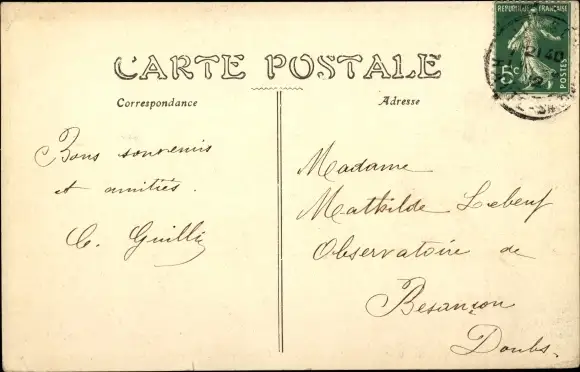 CARTE POSTALE
Correspondance
Adresse
REPUBLIQUE FRANÇAISE
5c
POSTES
21 40
Bons souvenirs
et amitiés.
Madame
Mathilde Lebeuf
Observatoire de
Besançon
Doubs.